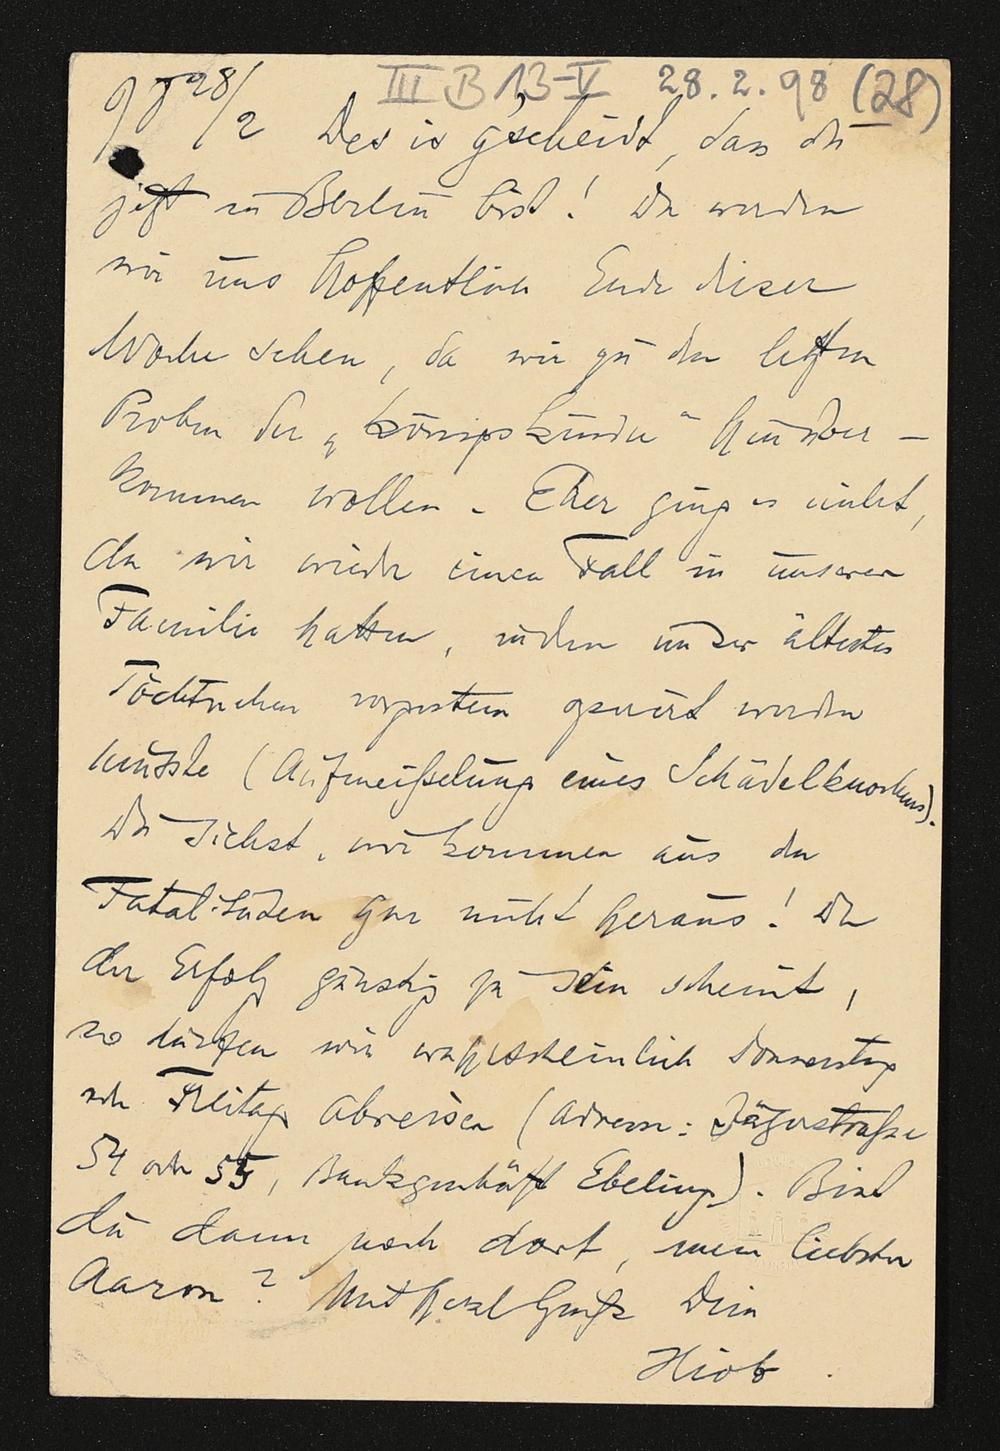 III B 13-V 28.2.98 (28)
28/2 Des is g'scheidt, dass du
jetzt in Berlin bist! Da werden
wir uns hoffentlich Ende dieser
Woche sehen, da wir zu den letzten
Proben der „Königskinder" hinüber –
kommen wollen. Eher ging es nicht,
da wir wieder einen Fall in unserer
Familie hatten, indem unser ältestes
Töchterchen vorgestern operirt werden
musste (Aufmeißelung eines Schädelknochens).
Du siehst, wir kommen aus den
Fatalitäten gar nicht heraus! Da
der Erfolg günstig zu sein scheint,
so dürfen wir wahrscheinlich Donnerstag
oder Freitag abreisen (Adresse: Jägerstraße
54 oder 55, Bankgeschäft Ebeling). Bist
du dann noch dort, mein liebster
Aaron? Mit herzl Gruß Dein
Hiob